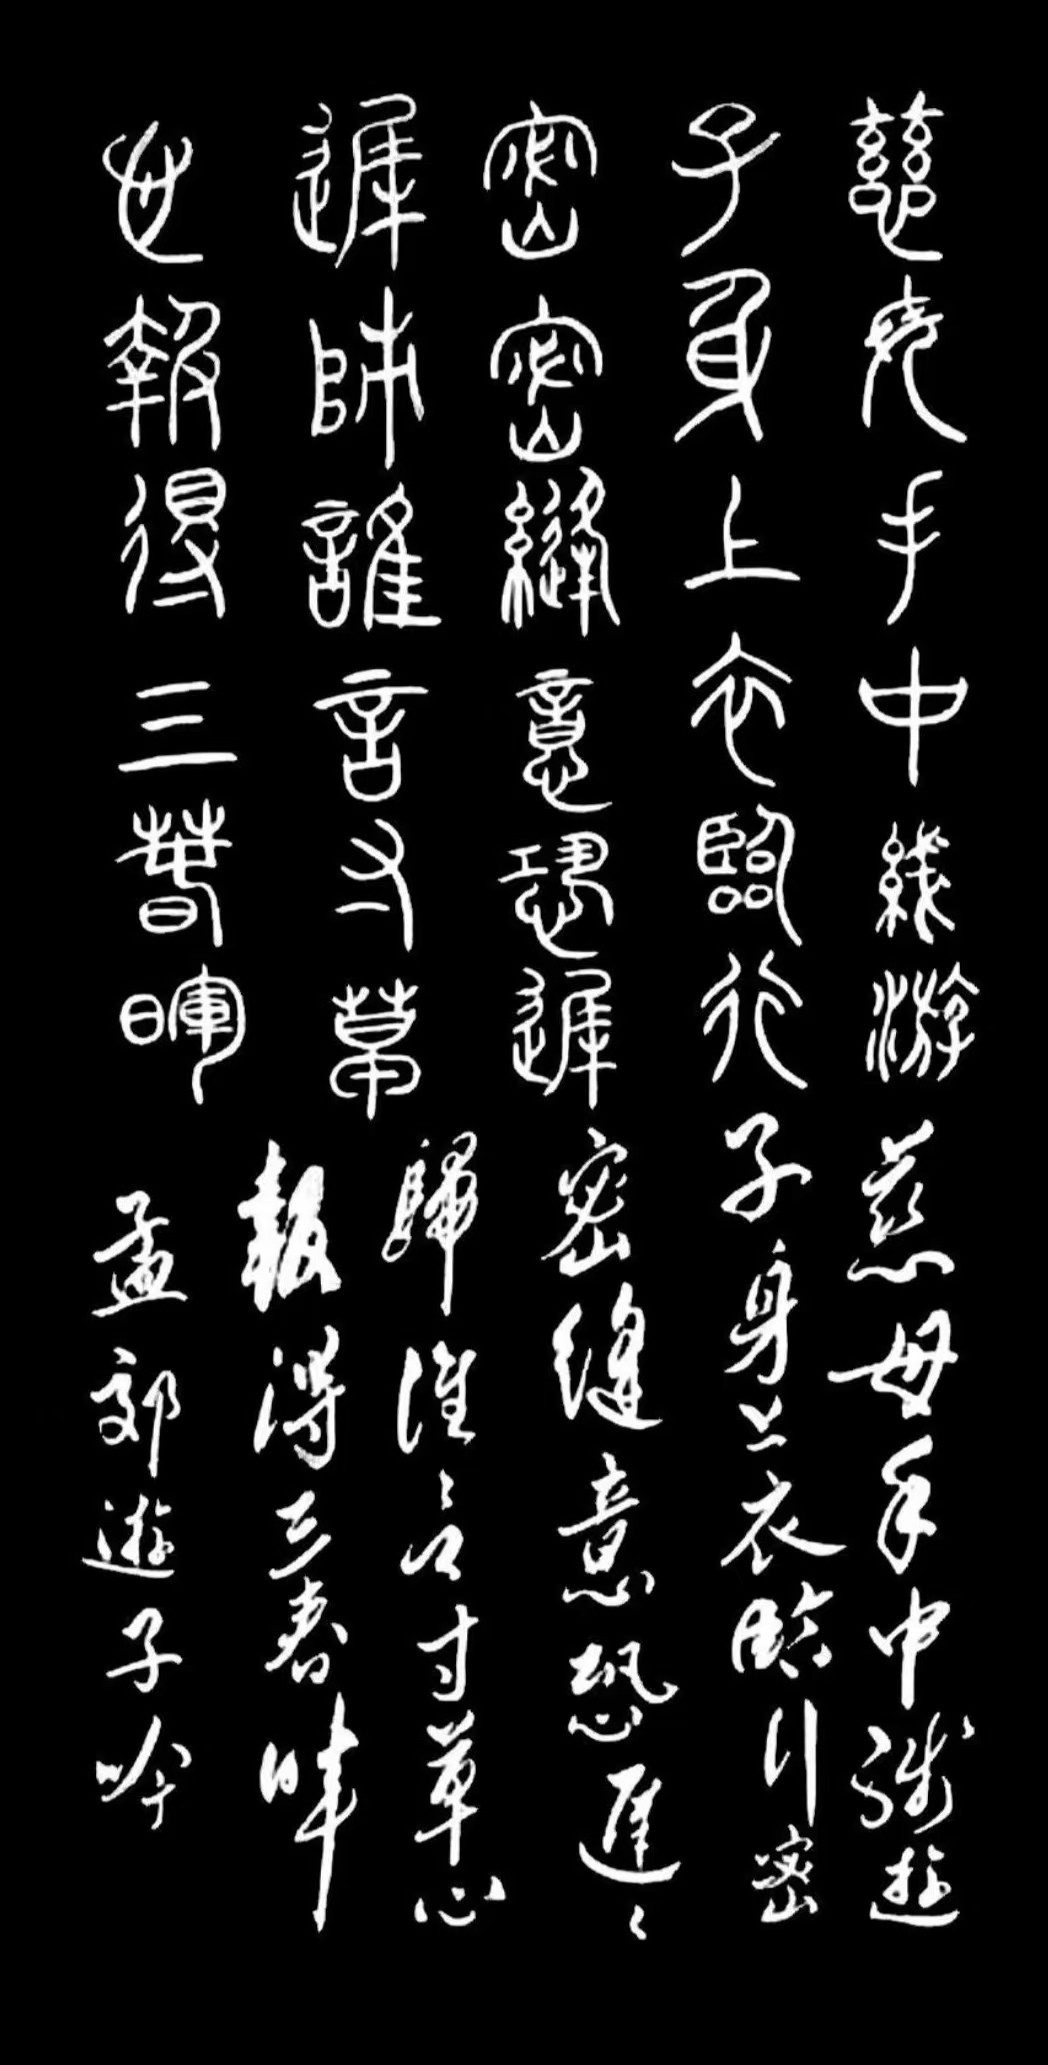 慈母手中線游
子身上衣臨行
密密縫意恐遲
遲歸誰言寸草
心報得三春暉
慈母手中線遊
子身上衣臨行密
密縫意恐遲〻
歸誰言寸草心
報得三春暉
孟郊遊子吟